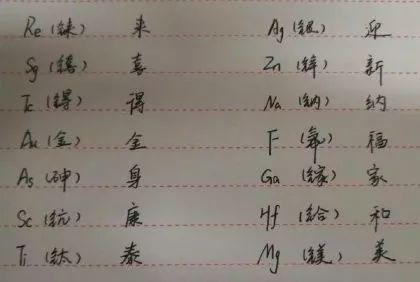 Re (铼) 来 Ag (银) 迎
Sg (𬭳) 喜 Zn (锌) 新
Tc (锝) 得 Na (钠) 纳
Au (金) 金 F (氟) 福
As (砷) 身 Ga (镓) 家
Sc (钪) 康 Hf (铪) 和
Ti (钛) 泰 Mg (镁) 美